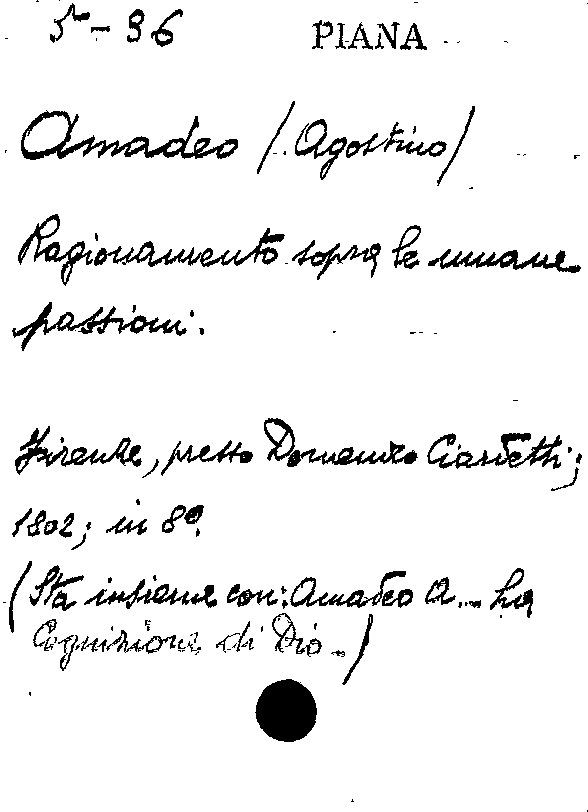 5ª-96 PIANA
Amadeo (Agostino)
Ragionamento sopra le umane
passioni.
Firenze, presso Domenico Ciardetti;
1802; in 8º.
(Sta insieme con: Amadeo A... La
Cognizione di Dio.-)